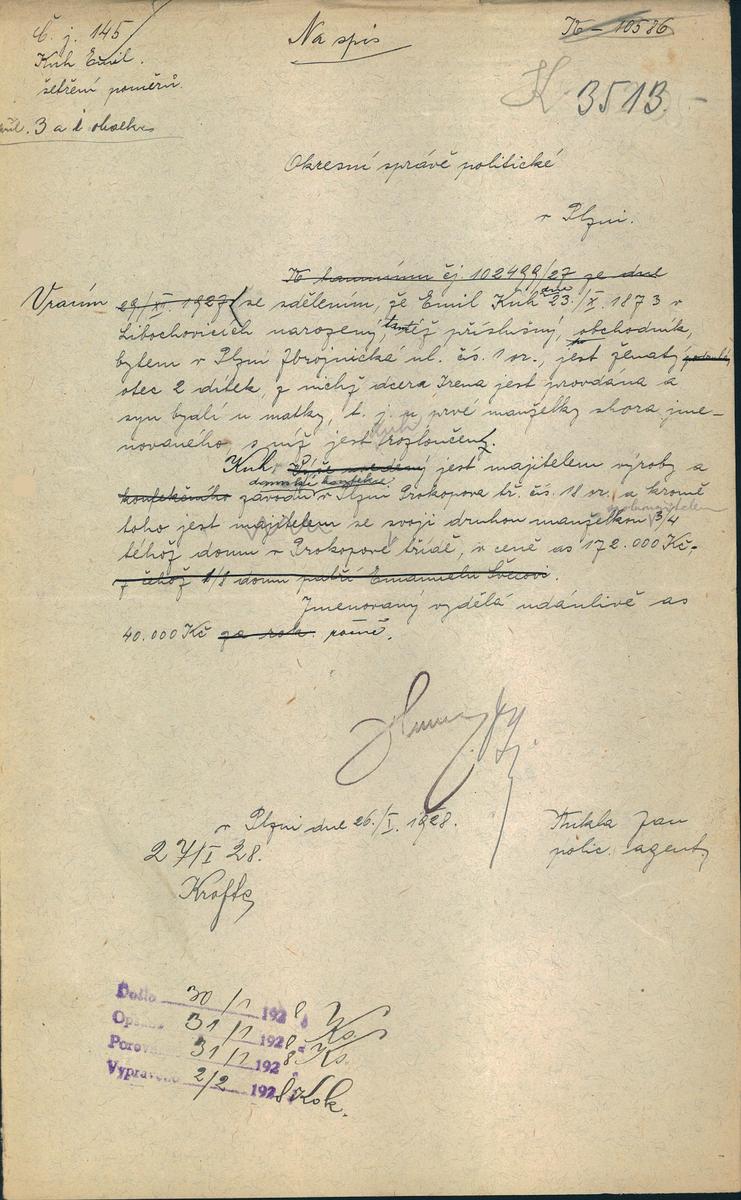 Č. j. 145
Kuh Emil.
šetření poměrů.
příl. 3 a 1 obálka
Na spis
K – 10586
K 3513.–
Okresní správě politické
v Plzni.
K tamnímu čj. 102499/27 ze dne
Vracím 29/XI. 1927 se sdělením, že Emil Kuh dne 23./X. 1873 v
Libochovicích narozený, tamtéž příslušný, obchodník,
bytem v Plzni Zbrojnická ul. čís. 1 vr., jest ženatý podruhé
otec 2 dítek, z nichž dcera Irena jest provdána a
syn bydlí u matky, t. j. u prvé manželky shora jme-
novaného, s níž jest Kuh rozloučen.
Kuh Výše uvedený jest majitelem výroby a
domácí konfekce
konfekčního závodu v Plzni Prokopova tř. čís. 18 vr. a kromě
spolumajitelem
toho jest majitelem se svojí druhou manželkou 3/4
téhož domu v Prokopově třídě, v ceně as 172.000 Kč.-
z čehož 1/8 domu patří Emanuelu Švecovi.
Jmenovaný vydělá udánlivě as
40.000 Kč za rok ročně.
v Plzni dne 26./I. 1928.
27/I 28.
Krofta
Jan
polic. agent
Došlo 30/1 1928 Ks.
Opsáno 31/1 1928 Ks.
Porovnáno 31/1 1928
Vypraveno 2/2 1928 Kok.